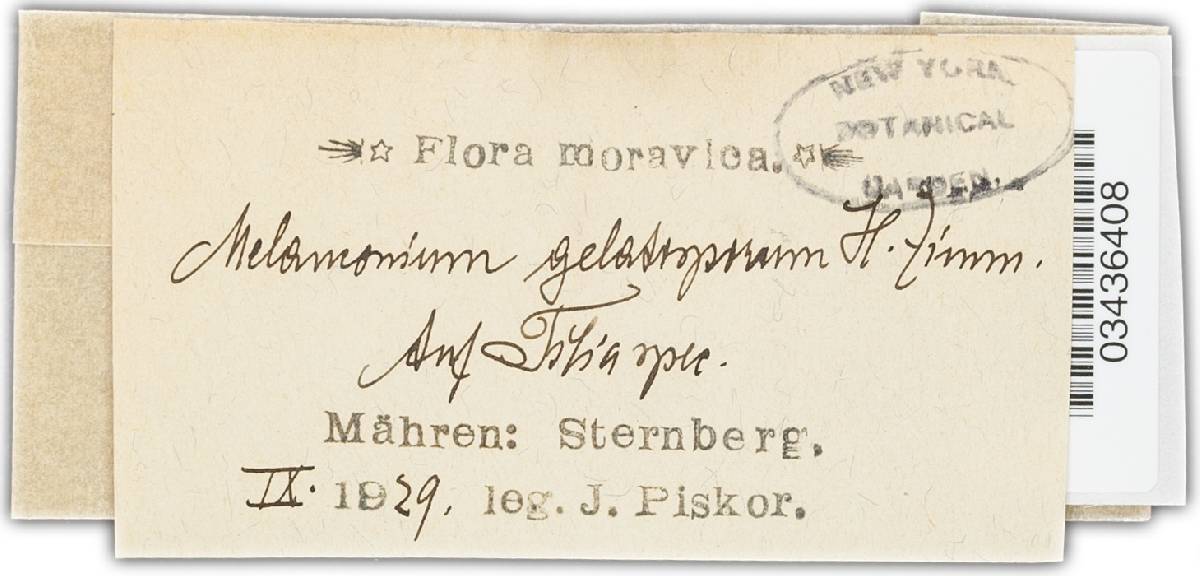 NEW YORK
BOTANICAL
GARDEN.
☆ Flora moravica. ☆
Melanconium gelatosporum H. Zimm.
Auf Tilia spec.
Mähren: Sternberg.
IX. 1929. leg. J. Piskor.
03436408